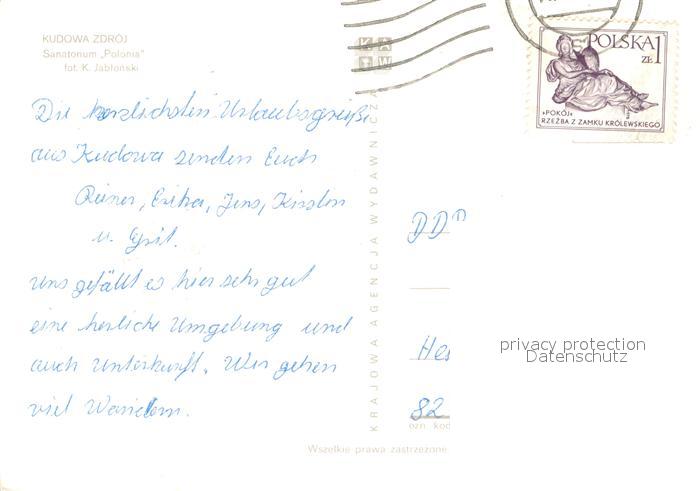 KUDOWA ZDRÓJ
Sanatorium „Polonia"
fot. K. Jabłoński
Die herzlichsten Urlaubsgrüße
aus Kudowa senden Euch
Reiner, Erika, Jens, Kirsten
u. Grit.
Uns gefällt es hier sehr gut
eine herliche Umgebung und
auch Unterkunft. Wir gehen
viel Wandern.
KRAJOWA AGENCJA WYDAWNICZA
KA
TW
POLSKA 1
ZŁ
»POKÓJ«
RZEŹBA Z ZAMKU KRÓLEWSKIEGO
DDR
82
ozn. kod
Wszelkie prawa zastrzeżone
privacy protection
Datenschutz